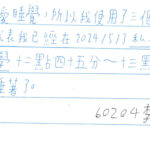 愛睡覺,所以我使用了三個
表我已經在70241517
學 十二點四十五分～十三點
睡著了。
60204李